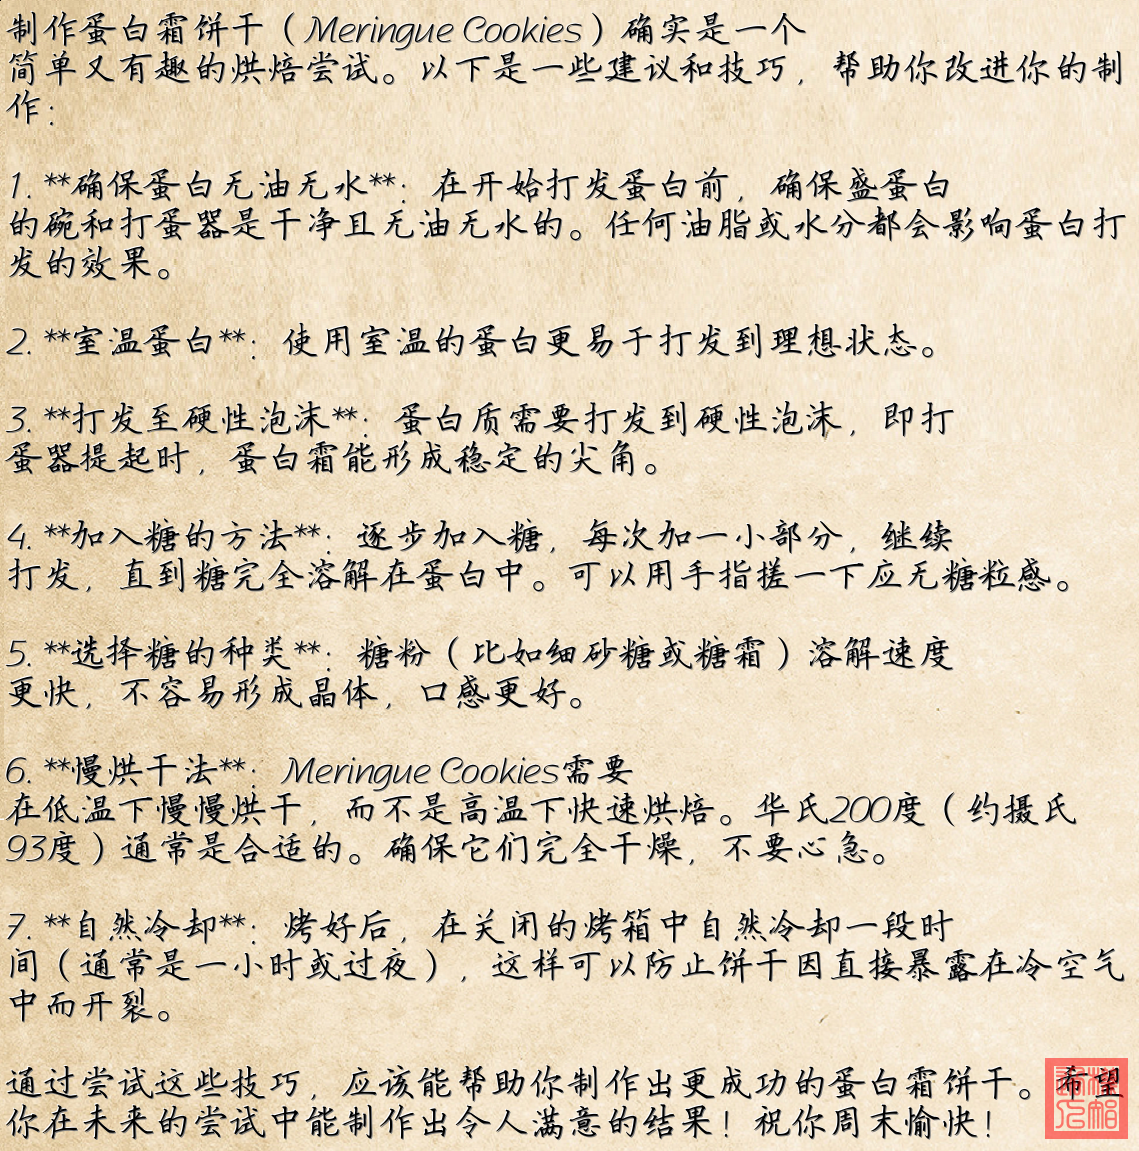 制作蛋白霜饼干（Meringue Cookies）确实是一个
简单又有趣的烘焙尝试。以下是一些建议和技巧，帮助你改进你的制
作：
1. **确保蛋白无油无水**：在开始打发蛋白前，确保盛蛋白
的碗和打蛋器是干净且无油无水的。任何油脂或水分都会影响蛋白打
发的效果。
2. **室温蛋白**：使用室温的蛋白更易于打发到理想状态。
3. **打发至硬性泡沫**：蛋白质需要打发到硬性泡沫，即打
蛋器提起时，蛋白霜能形成稳定的尖角。
4. **加入糖的方法**：逐步加入糖，每次加一小部分，继续
打发，直到糖完全溶解在蛋白中。可以用手指搓一下应无糖粒感。
5. **选择糖的种类**：糖粉（比如细砂糖或糖霜）溶解速度
更快，不容易形成晶体，口感更好。
6. **慢烘干法**：Meringue Cookies需要
在低温下慢慢烘干，而不是高温下快速烘焙。华氏200度（约摄氏
93度）通常是合适的。确保它们完全干燥，不要心急。
7. **自然冷却**：烤好后，在关闭的烤箱中自然冷却一段时
间（通常是一小时或过夜），这样可以防止饼干因直接暴露在冷空气
中而开裂。
通过尝试这些技巧，应该能帮助你制作出更成功的蛋白霜饼干。希望
你在未来的尝试中能制作出令人满意的结果！祝你周末愉快！